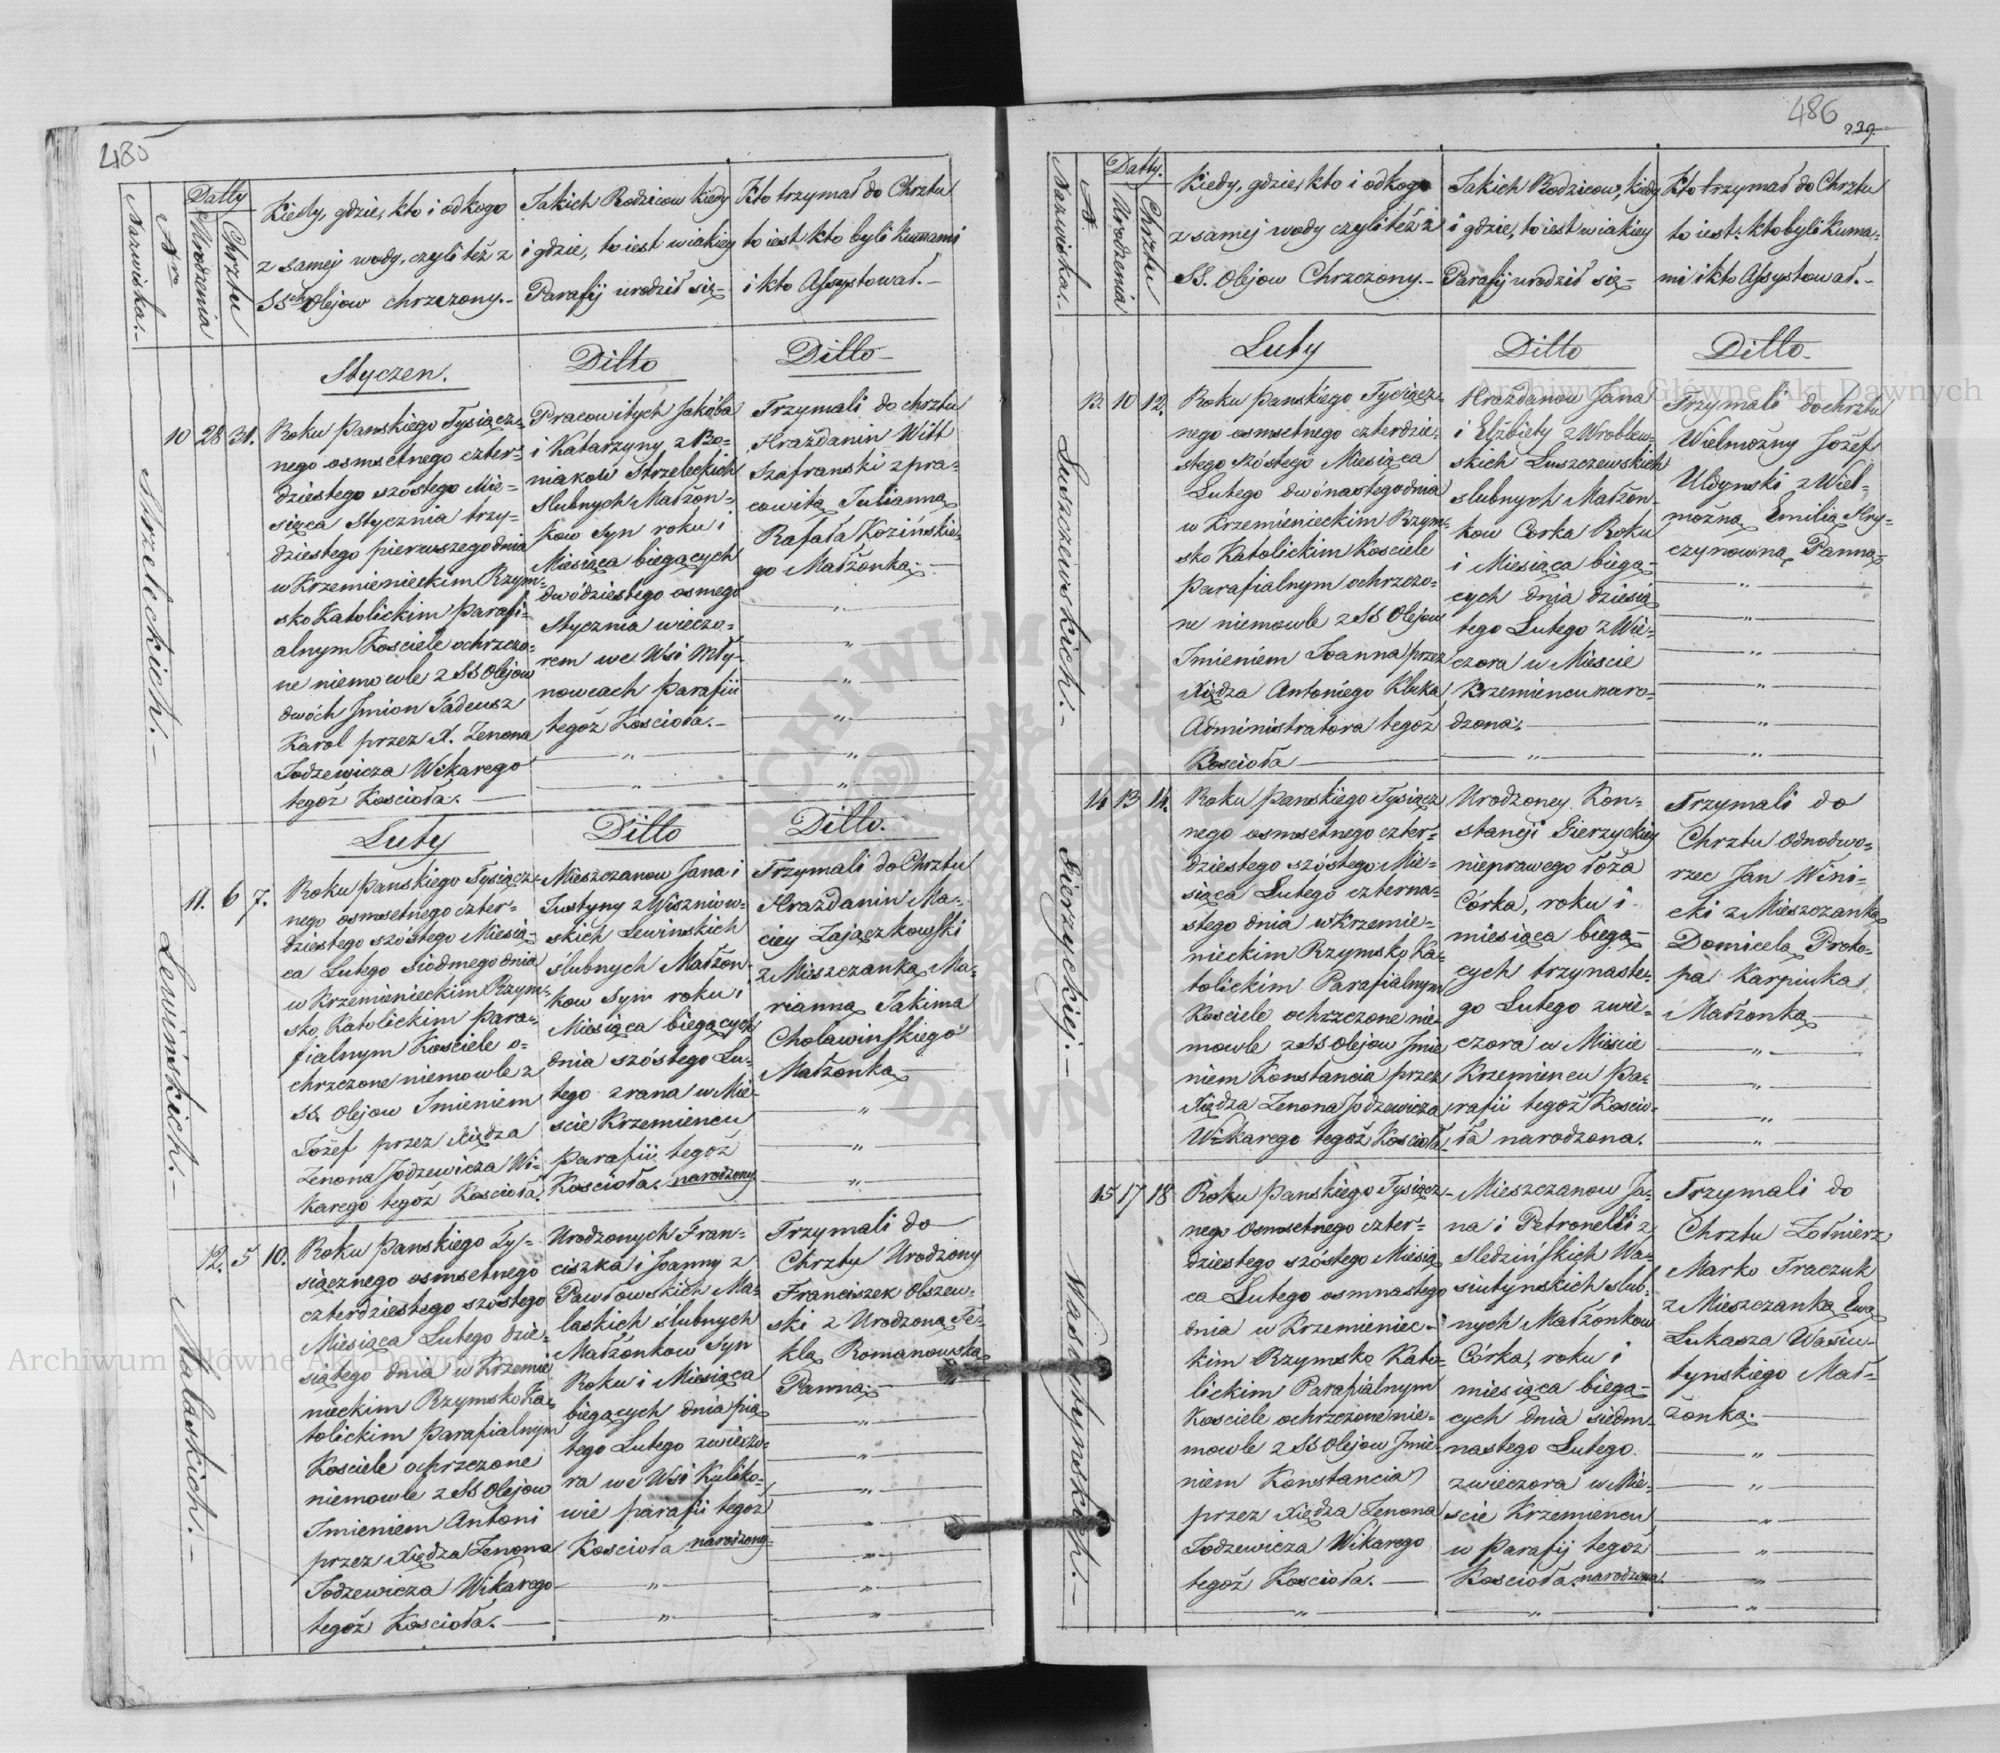 485
Nazwiska.-
Nro
Datty
Urodzenia
Chrztu
Kiedy, gdzie, kto i od kogo
z samej wody, czyli też z
SSch Olejow chrzczony.-
Jakich Rodzicow kiedy
i gdzie, to iest w iakiey
Parafij urodził się-
Kto trzymał do Chrztu
to iest kto byli kumami
i kto Assystował.-
Styczen.
Ditto
Ditto-
Strzeleckich.-
10
28
31.
Roku Panskiego Tysiącz-
nego osmsetnego czter-
dziestego szóstego Mie-
siąca Stycznia trzy-
dziestego pierwszego dnia
w Krzemienieckim Rzym-
sko Katolickim Parafi-
alnym Kosciele ochrzczo-
ne niemowle z SS Olejow
dwóch Jmion Tadeusz
Karol przez X. Zenona
Jodzewicza Wikarego
tegoż Kosciola.-
Pracowitych Jakóba
i Katarzyny z Bo-
niakow Strzeleckich
Slubnych Małżon-
kow Syn roku i
Miesiąca biegących
dwódziestego osmego
Stycznia wieczo-
rem we Wsi Mły-
nowcach Parafii
tegoż Kosciola.-
Trzymali do chrztu
Hrażdanin Witt
Szafranski z pra-
cowitą Julianną
Rafała Kozińskie-
go Małżonką.-
Luty
Ditto
Ditto.
Lewińskich.-
11.
6
7.
Roku Panskiego Tysiącz-
nego osmsetnego czter-
dziestego szóstego Miesią-
ca Lutego siodmego dnia
w Krzemienieckim Rzym-
sko Katolickim Para-
fialnym Kosciele o-
chrzczone niemowle z
SS. Olejow Imieniem
Jożef przez Xiędza
Zenona Jodzewicza Wi-
karego tegoż Kosciola.
Mieszczanow Jana i
Justyny z Wiszniow-
skich Lewinskich
ślubnych Małżon-
kow Syn roku i
Miesiąca biegących
dnia szóstego Lu-
tego z rana w Mie-
scie Krzemiencu
parafii tegoż
Kosciola. narodzony
Trzymali do Chrztu
Hrażdanin Ma-
ciey Zajączkowski
z Mieszczanką Ma-
rianną Jakima
Cholawinskiego
Małżonką
Malaskich.-
12.
5
10.
Roku Panskiego Ty-
siącznego osmsetnego
czterdziestego szóstego
Miesiąca Lutego dzie-
siątego dnia w Krzemie
nieckim Rzymsko Ka-
tolickim parafialnym
Kosciele ochrzczone
niemowle z SS Olejow
Imieniem Antoni
przez Xiędza Zenona
Jodzewicza Wikarego
tegoż Kosciola.
Urodzonych Fran-
ciszka i Joanny z
Pawłowskich Ma-
laskich ślubnych
Małżonkow Syn
Roku i Miesiąca
biegących dnia pią
tego Lutego z wieczo-
ra we Wsi Kuliko-
wie parafii tegoż
Kosciola narodzony
Trzymali do
Chrztu Urodzony
Franciszek Olszew-
ski z Urodzoną Te-
klą Romanowską
Panną.-
486
239.
Nazwiska.-
N.
Datty.
Urodzenia
Chrztu
Kiedy, gdzie, kto i od kogo
z samej wody czyli też z
SS. Olejow Chrzczony.-
Jakich Rodzicow, kiedy
i gdzie, to iest w iakiey
Parafij urodził się-
Kto trzymał do Chrztu
to iest: kto byli Kuma-
mi i kto Assystował.-
Luty
Ditto
Ditto.
Luszczewskich.-
13.
10
12.
Roku Panskiego Tysiącz-
nego osmsetnego czterdzie-
stego szóstego Miesiąca
Lutego dwónastego dnia
w Krzemienieckim Rzym-
sko Katolickim Kosciele
Parafialnym ochrzczo-
ne niemowle z SS Olejow
Imieniem Joanna przez
Xiędza Antoniego Kluka
Administratora tegoż
Kosciola
Hrażdanow Jana
i Elżbiety z Wroblew-
skich Luszczewskich
slubnych Małżon-
kow Corka Roku
i Miesiąca biegą-
cych dnia dziesią
tego Lutego z Wie-
czora w Miescie
Krzemiencu naro-
dzona.-
Trzymali do chrztu
Wielmożny Jożef
Uldynski z Wiel-
możną Emilią Hry-
czynowną Panną-
Gierzyckiej.-
14
13
14.
Roku Panskiego Tysiącz
nego osmsetnego czter-
dziestego szóstego Mie-
siąca Lutego czterna-
stego dnia w Krzemie-
nieckim Rzymsko Ka-
tolickim Parafialnym
Kosciele ochrzczone nie-
mowle z SS Olejow Jmie
niem Konstancia przez
Xiędza Zenona Jodzewicza
Wikarego tegoż Kosciola
Urodzoney Kon-
stancji Gierzyckiey
nieprawego łoża
Córka, roku i
miesiąca biegą-
cych trzynaste-
go Lutego z wie-
czora w Miescie
Krzemiencu Pa-
rafii tegoż Koscio-
ła narodzona.
Trzymali do
Chrztu Odnodwo-
rzec Jan Wini-
cki z Mieszczanką
Domicelą Proko-
pa Karpiuka
Małżonką
Wasiutynskich.-
15
17
18
Roku Panskiego Tysiącz-
nego Osmsetnego czter-
dziestego szóstego Miesią
ca Lutego osmnastego
dnia w Krzemieniec-
kim Rzymsko Kato-
lickim Parafialnym
Kosciele ochrzczone nie-
mowle z SS Olejow Jmie-
niem Konstancia
przez Xiędza Zenona
Jodzewicza Wikarego
tegoż Kosciola.-
Mieszczanow Ja-
na i Petronelli z
Sledzińskich Wa-
siutynskich slub-
nych Małżonkow
Córka, roku i
miesiąca biegą-
cych dnia siedm-
nastego Lutego
z wieczora w Mie-
scie Krzemiencu
w Parafij tegoż
Kosciola. narodzona.
Trzymali do
Chrztu Żołnierz
Marko Traczuk
z Mieszczanką Ewą
Lukasza Wasiu-
tynskiego Mał-
żonką.-
Archiwum Główne Akt Dawnych
Archiwum Główne Akt Dawnych